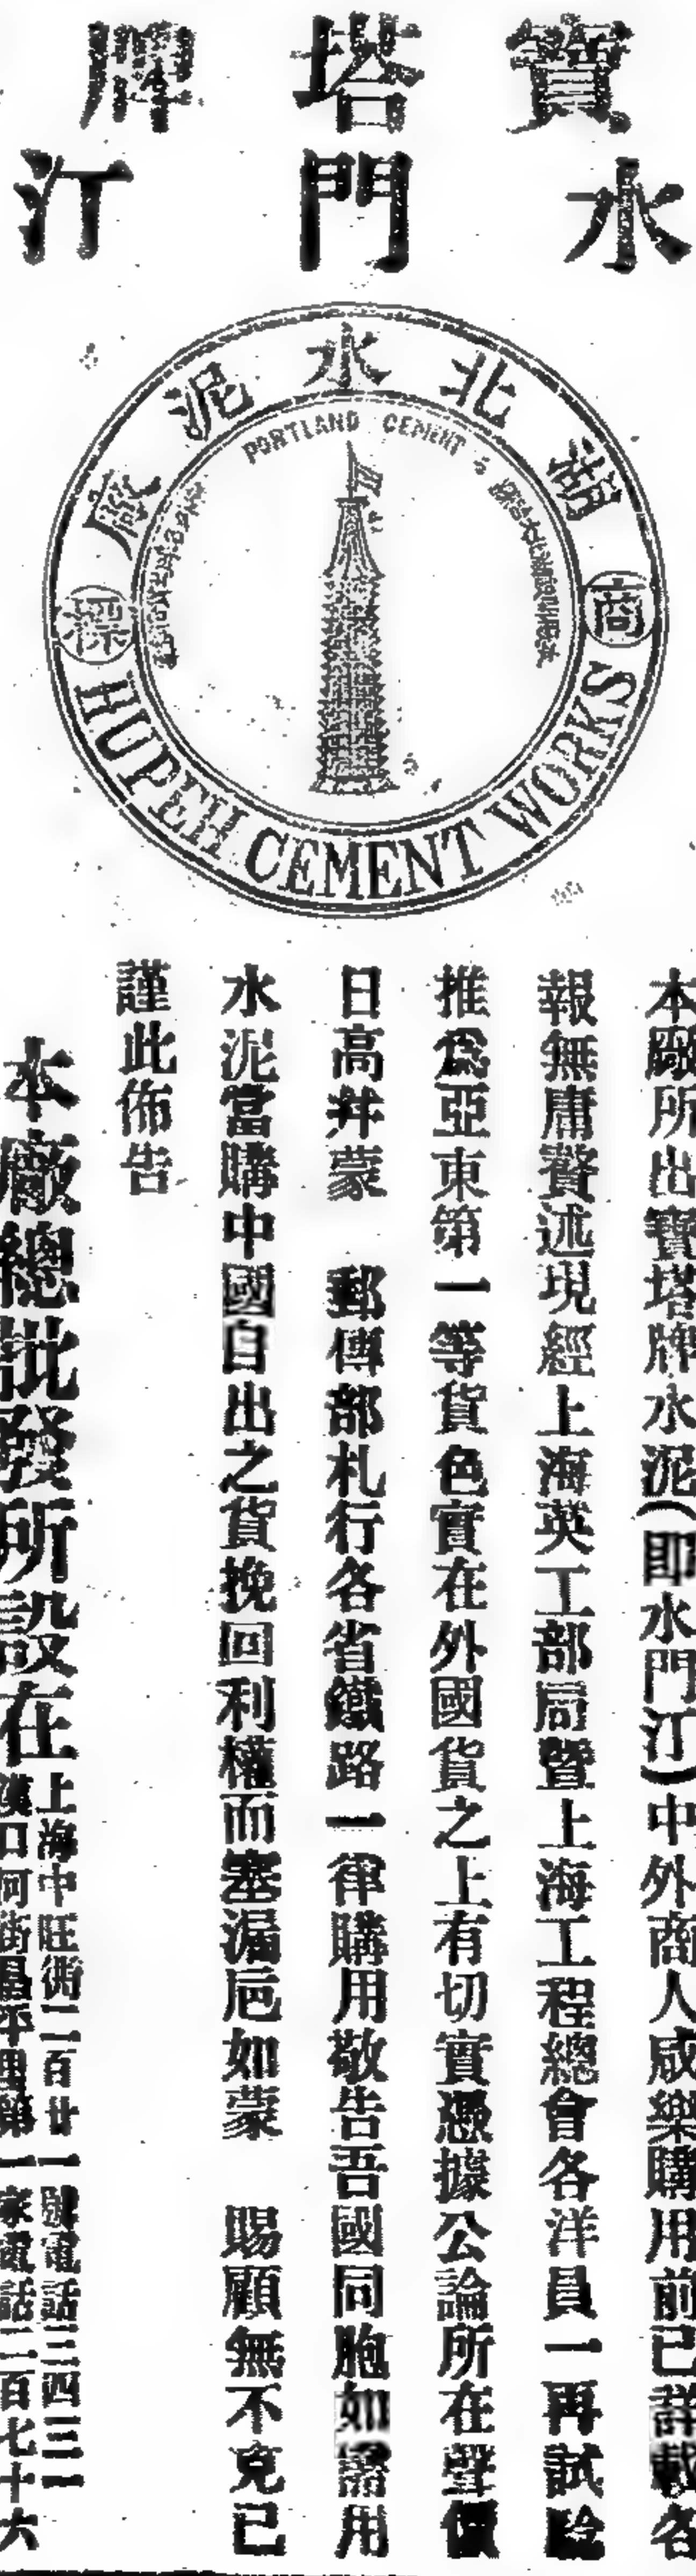 寶塔牌
水門汀
湖北水泥廠
PORTLAND CEMENT
商標
HUPEH CEMENT WORKS
本廠所出寶塔牌水泥(即水門汀)中外商人咸樂購用前已詳載各
報無庸贅述現經上海英工部局暨上海工程總會各洋員一再試驗
推爲亞東第一等貨色實在外國貨之上有切實憑據公論所在聲價
日高幷蒙 郵傳部札行各省鐵路一律購用敬告吾國同胞如需用
水泥當購中國自出之貨挽回利權而塞漏卮如蒙 賜顧無不克己
謹此佈告
本廠總批發所設在
上海中旺街二百廿一號電話三四三一
漢口河街昌平里第一家電話二百七十六